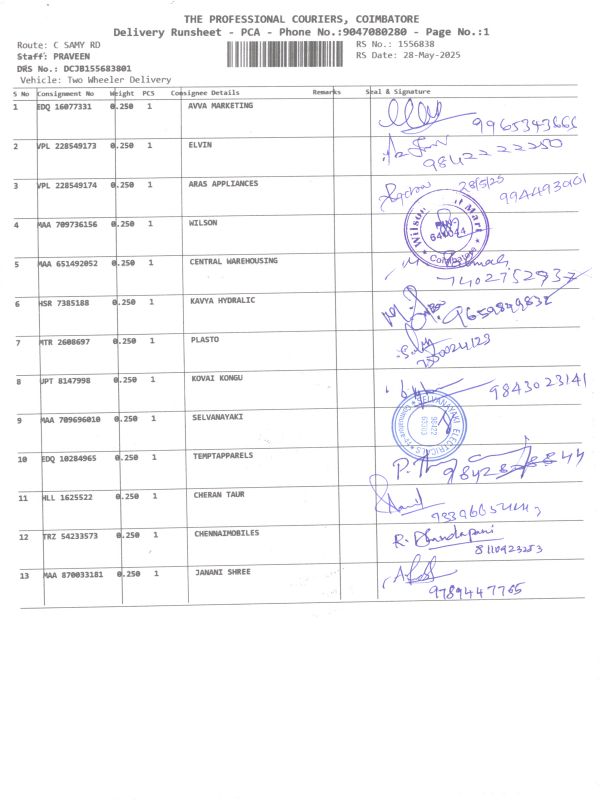 THE PROFESSIONAL COURIERS, COIMBATORE
Delivery Runsheet - PCA - Phone No.:9047080280 - Page No.:1
Route: C SAMY RD RS No.: 1556838
Staff: PRAVEEN RS Date: 28-May-2025
DRS No.: DCJB155683801
Vehicle: Two Wheeler Delivery
S No Consignment No Weight PCS Consignee Details Remarks Seal & Signature
1 EDQ 16077331 0.250 1 AVVA MARKETING
2 VPL 228549173 0.250 1 ELVIN 9842222250
3 VPL 228549174 0.250 1 ARAS APPLIANCES 28/5/25
4 MAA 709736156 0.250 1 WILSON Wilson Mart 641044 Coimbatore
5 MAA 651492052 0.250 1 CENTRAL WAREHOUSING 7402752937
6 HSR 7385188 0.250 1 KAVYA HYDRALIC
7 MTR 2608697 0.250 1 PLASTO
8 JPT 8147998 0.250 1 KOVAI KONGU 9843023141
9 MAA 709696010 0.250 1 SELVANAYAKI SELVANAYAKI ELECTRICALS
10 EDQ 10284965 0.250 1 TEMPTAPPARELS
11 HLL 1625522 0.250 1 CHERAN TAUR
12 TRZ 54233573 0.250 1 CHENNAIMOBILES R. Dhandapani
8110923253
13 MAA 870033181 0.250 1 JANANI SHREE
9789447765